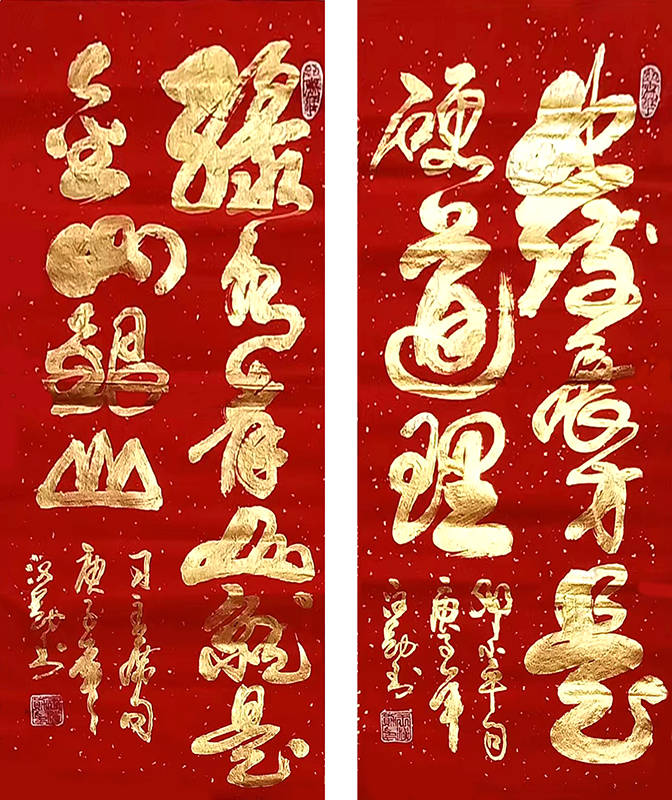 发展才是
硬道理
邓小平句
庚子年
书
绿水青山就是
金山银山
习主席句
庚子年
书